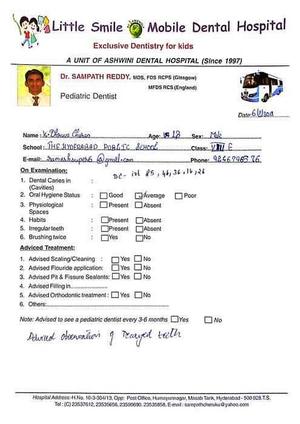 Little Smile Mobile Dental Hospital
Exclusive Dentistry for kids
A UNIT OF ASHWINI DENTAL HOSPITAL (Since 1997)
Dr. SAMPATH REDDY, MDS, FDS RCPS (Glasgow)
MFDS RCS (England)
Pediatric Dentist
Date:
Name: Age: Sex: Male
School: THE HYDERABAD PUBLIC SCHOOL Class: VIII F
E-mail: Phone:
On Examination:
1. Dental Caries in : DC - in 85, 46, 36, 16, 26
(Cavities)
2. Oral Hygiene Status : Good Average Poor
3. Physiological : Present Absent
Spaces
4. Habits : Present Absent
5. Irregular teeth : Present Absent
6. Brushing twice : Yes No
Adviced Treatment:
1. Advised Scaling/Cleaning : Yes No
2. Advised Flouride application: Yes No
3. Advised Pit & Fissure Sealants: Yes No
4. Advised Filling in
5. Advised Orthodontic treatment : Yes No
6. Others:
Note: Advised to see a pediatric dentist every 3-6 months Yes No
Advised observation of teeth
Hospital Address: H.No. 10-3-304/13, Opp: Post Office, Humayunnagar, Masab Tank, Hyderabad - 500 028 T.S.
Tel: (C) 23537612, 23535656, 23590690, 23535858, E-mail: sampathchenuku@yahoo.com